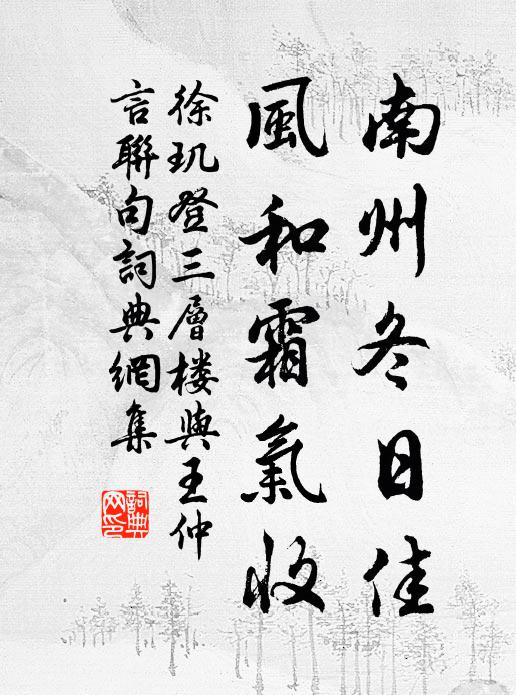 南州冬日佳
風和霜氣收
徐玑登三層楼與王仲
言聯句詞典網集
詞典网印